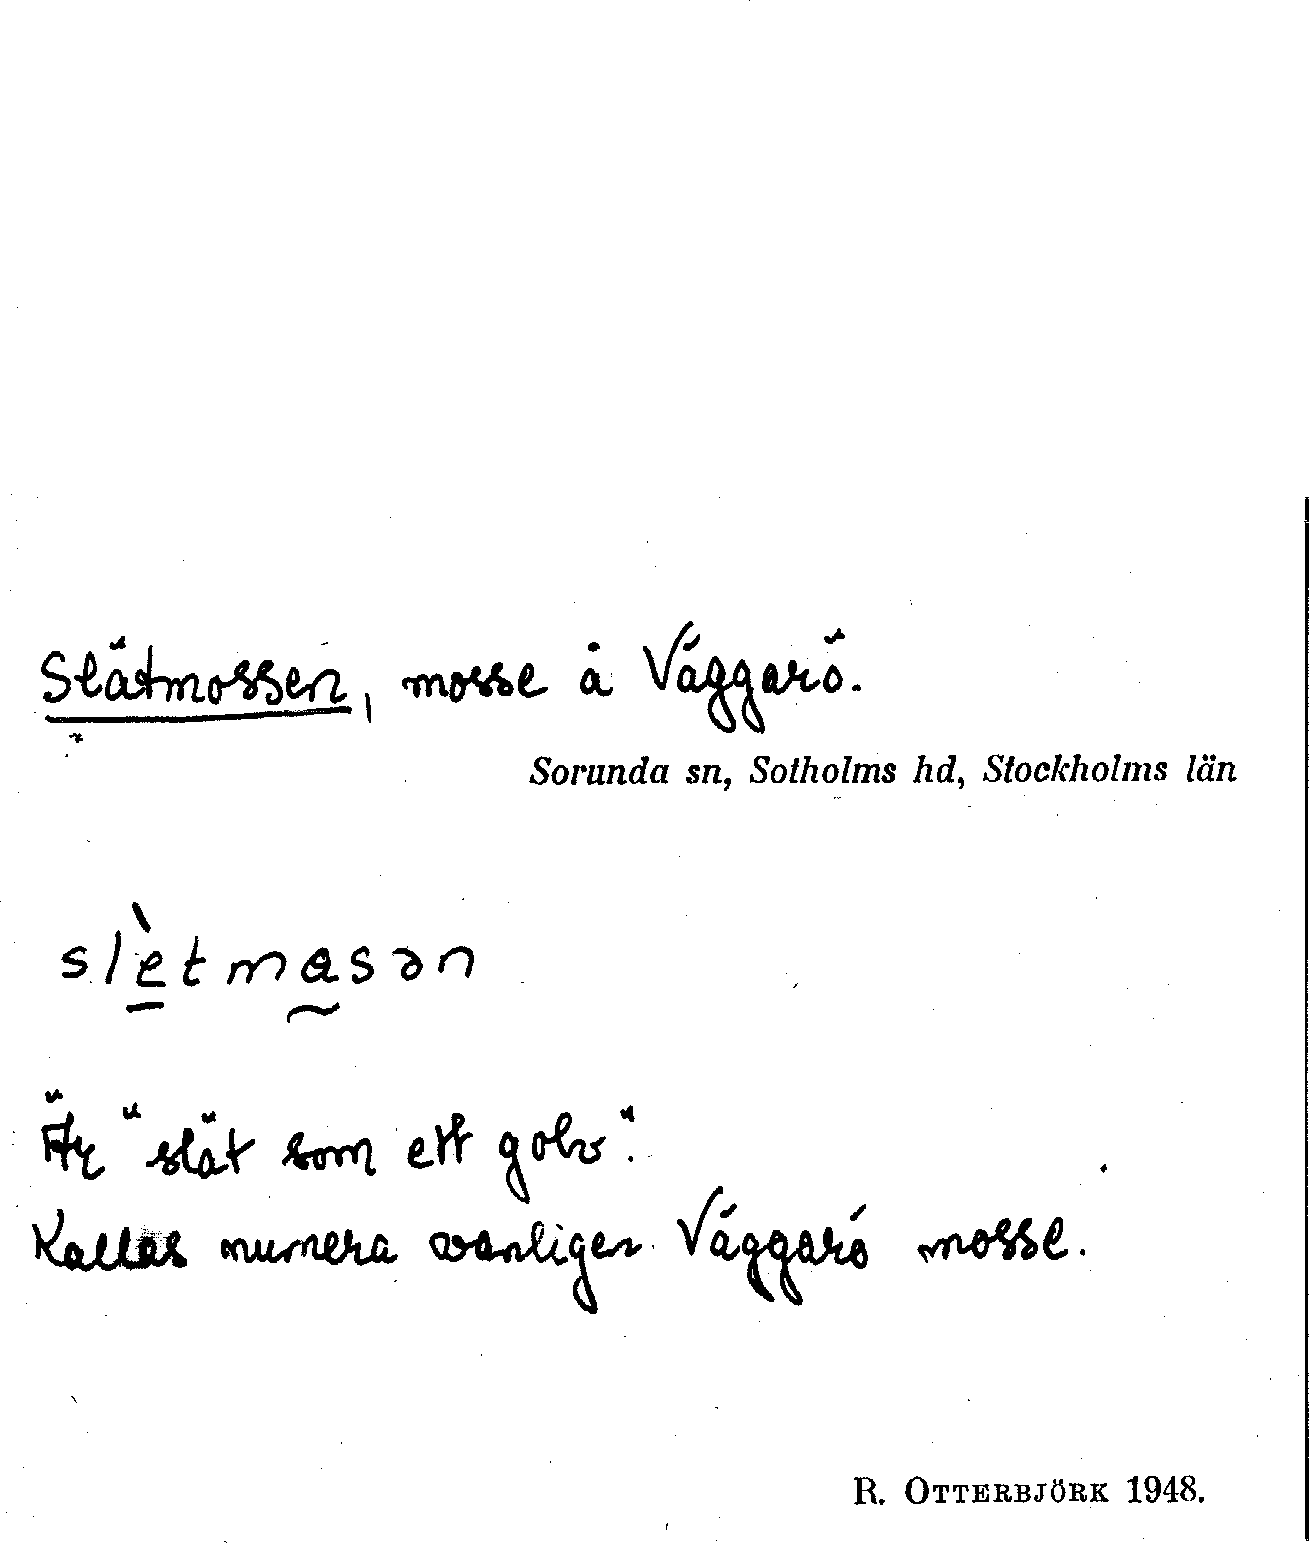 Slätmossen, mosse å Väggarö.
Sorunda sn, Sotholms hd, Stockholms län
slètmasən
Är "slät som ett golv".
Kallas numera vanligen Väggarö mosse.
R. OTTERBJÖRK 1948.